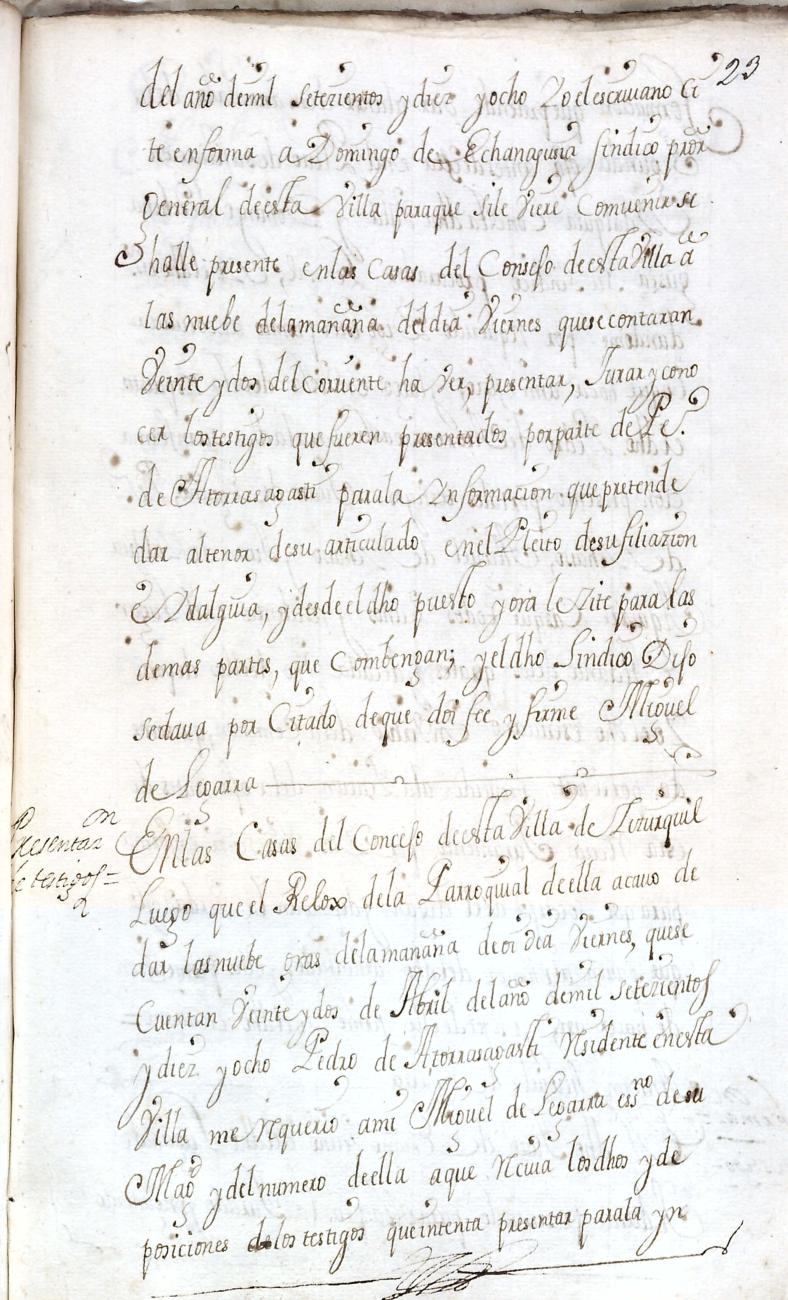 23
del año demil setezientos y diez y ocho Yo el escriuano Ci
te enforma a Domingo de Echanagusia sindico pror
General de esta Villa paraque sile Viere Comuenir se
halle presente enlas Casas del Consejo de esta Villa a
las nuebe delamañana deldia Viernes quesecontaran
Veinte y dos del corriente ha Ver, presentar, Jurar y cono
cer los testigos que fueren presentados por parte de Pe.
de Atorrasagasti parala Ynformacion que pretende
dar altenor desu articulado enel Pleito desufiliazion
e Ydalguia, y desde el dho puesto y ora le Zite para las
demas partes, que Combengan; y el dho Sindico Dijo
sedaua por Citado deque doi fee y firme Miguel
de Legarra
Presentazon
de testigos=
Enlas Casas del Concejo de esta Villa de Zizurquil
Luego que el Relox dela Parroquial de ella acauo de
dar lasnuebe oras delamañana de oi dia Viernes, quese
Cuentan Veinte y dos de Abril del año demil setezientos
y diez y ocho Pedro de Atorrasagasti Residente en esta
Villa me Requerio ami Miguel de Legarra essno de su
Magd y del numero de ella aque Reciua los dhos y de
posiciones de los testigos que intenta presentar parala yn